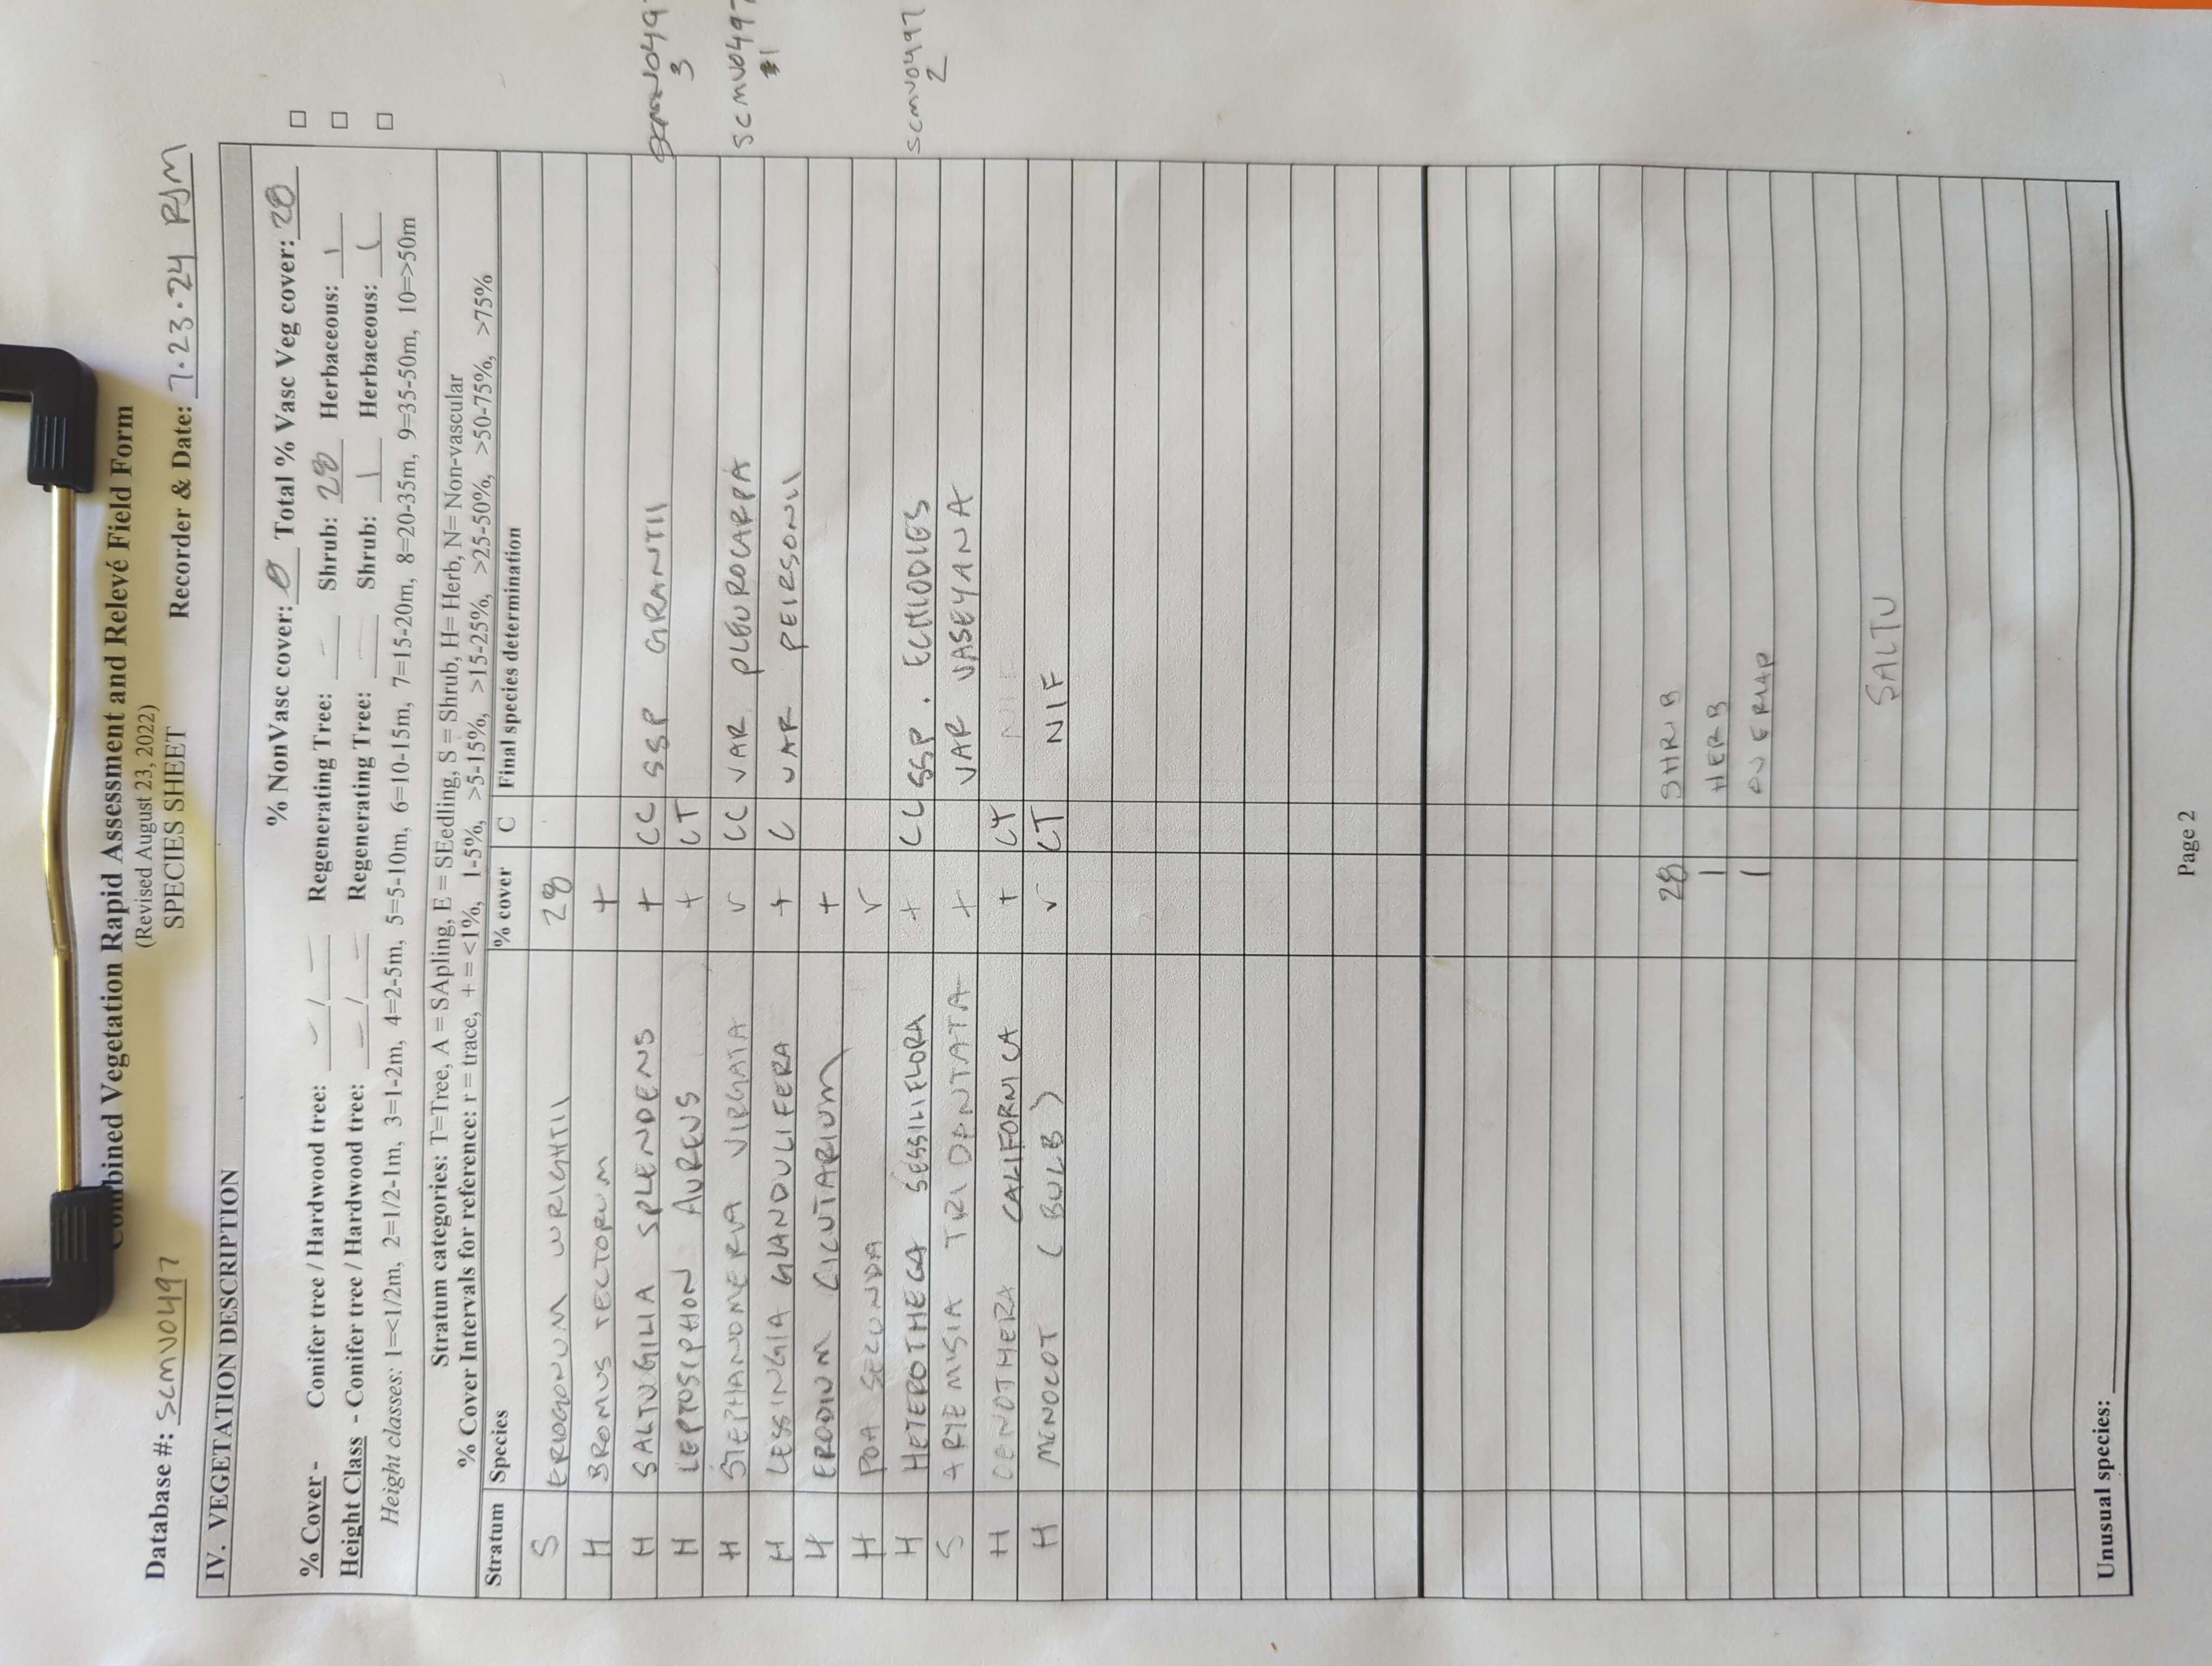 Combined Vegetation Rapid Assessment and Relevé Field Form
(Revised August 23, 2022)
SPECIES SHEET
Database #: SCMV0497 Recorder & Date: 7.23.24 RJM
IV. VEGETATION DESCRIPTION
% NonVasc cover: 0 Total % Vasc Veg cover: 28
% Cover - Conifer tree / Hardwood tree: - / - Regenerating Tree: - Shrub: 28 Herbaceous: 1
Height Class - Conifer tree / Hardwood tree: - / - Regenerating Tree: Shrub: 1 Herbaceous: 1
Height classes: 1=<1/2m, 2=1/2-1m, 3=1-2m, 4=2-5m, 5=5-10m, 6=10-15m, 7=15-20m, 8=20-35m, 9=35-50m, 10=>50m
Stratum categories: T=Tree, A = SApling, E = SEedling, S = Shrub, H= Herb, N= Non-vascular
% Cover Intervals for reference: r = trace, + = <1%, 1-5%, >5-15%, >15-25%, >25-50%, >50-75%, >75%
Stratum Species % cover C Final species determination
S ERIOGONUM WRIGHTII 28
H BROMUS TECTORUM +
H SALTUGILIA SPLENDENS + CC SSP GRANTII SCMV0497 3
H LEPTOSIPHON AUREUS + CT
H STEPHANOMERIA VIRGATA r CC VAR PLEUROCARPA SCMV0497 #1
H LESSINGIA GLANDULIFERA + C VAR PEIRSONII
H ERODIUM CICUTARIUM +
H POA SECUNDA r
H HETEROTHECA SESSILIFLORA + CC SSP. ECHIODIES SCMV0497 2
S ARTEMISIA TRIDENTATA + VAR VASEYANA
H OENOTHERA CALIFORNICA + CT NIF
H MONOCOT (BULB) r CT NIF
28 SHRUB
1 HERB
1 OVERLAP
SALTU
Unusual species:
Page 2